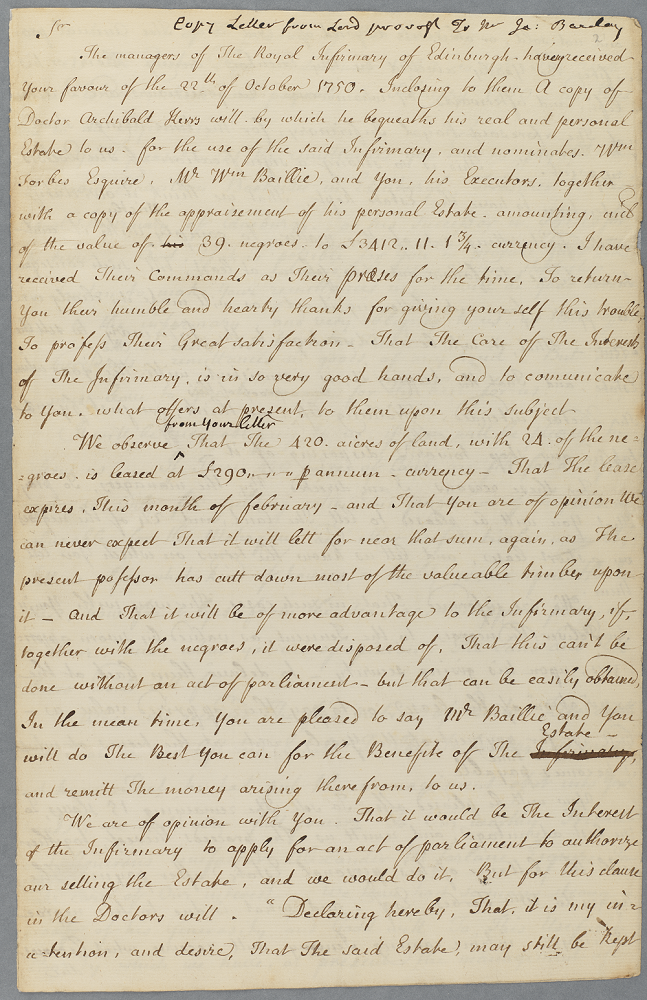 Sr
Copy Letter from Lord provost To Mr Ja: Barclay
2
The managers of The Royal Infirmary of Edinburgh having received
Your favour of the 22th of October 1750. Inclosing to them A copy of
Doctor Archibald Kerrs will. by which he bequeaths his real and personal
Estate to us. for the use of the said Infirmary, and nominates. Wm
Forbes Esquire, Mr Wm Baillie, and You, his Executors, together
with a copy of the appraisement of his personal Estate. amounting, incl
of the value of his 39. negroes. to £3412,. 11. 1¾. currency. I have
received Their Commands as Their Præses for the time, To return
You their humble and hearty thanks for giving yourself this trouble,
To profess Their Great satisfaction - That The Care of The Interests
of The Infirmary, is in so very good hands, and to comunicate
to You. what offers at present, to them upon this subject
from Your letter
We observe ^ That The 420. aicres of land, with 24. of the ne=
=groes. is leased at £290,. ,, ,, p annum. currency - That The lease
expires, This month of february - and That You are of opinion We
can never expect That it will lett for near that sum, again, as The
present possessor has cutt down most of the valueable timber upon
it - and That it will be of more advantage to the Infirmary, if,
together with the negroes, it were disposed of, That this can't be
done without an act of parliament - but that can be easily obtained,
In the mean time, You are pleased to say Mr Baillie and You
Estate -
will do The Best You can for the Benefite of The Infirmary,
and remitt The money arising therefrom, to us.
We are of opinion with You. That it would be The Interest
of the Infirmary to apply for an act of parliament to authorize
our selling the Estate, and we would do it, But for this clause
in the Doctors will. "Declaring hereby, That, it is my in=
"tention, and desire, That The said Estate, may still be Kept